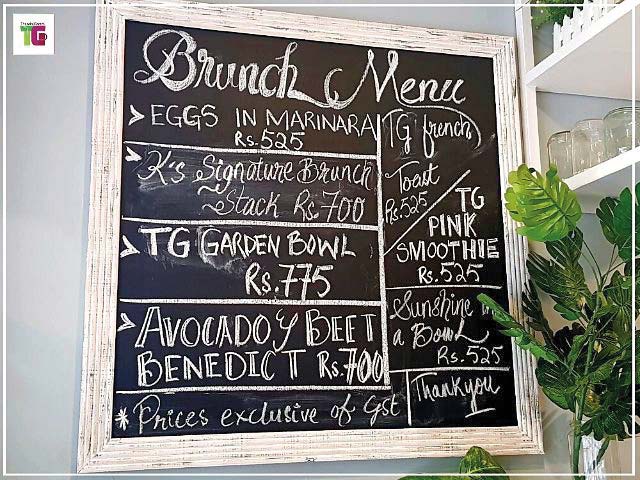 TG
Brunch Menu
> EGGS IN MARINARA
Rs.525
> K's Signature Brunch
Stack Rs.700
> TG GARDEN BOWL
Rs.775
> AVOCADO Y BEET
BENEDICT Rs.700
* Prices exclusive of Gst
TG french
Toast
Rs.525
TG
PINK
SMOOTHIE
Rs.525
Sunshine in
a Bowl
Rs.525
Thankyou